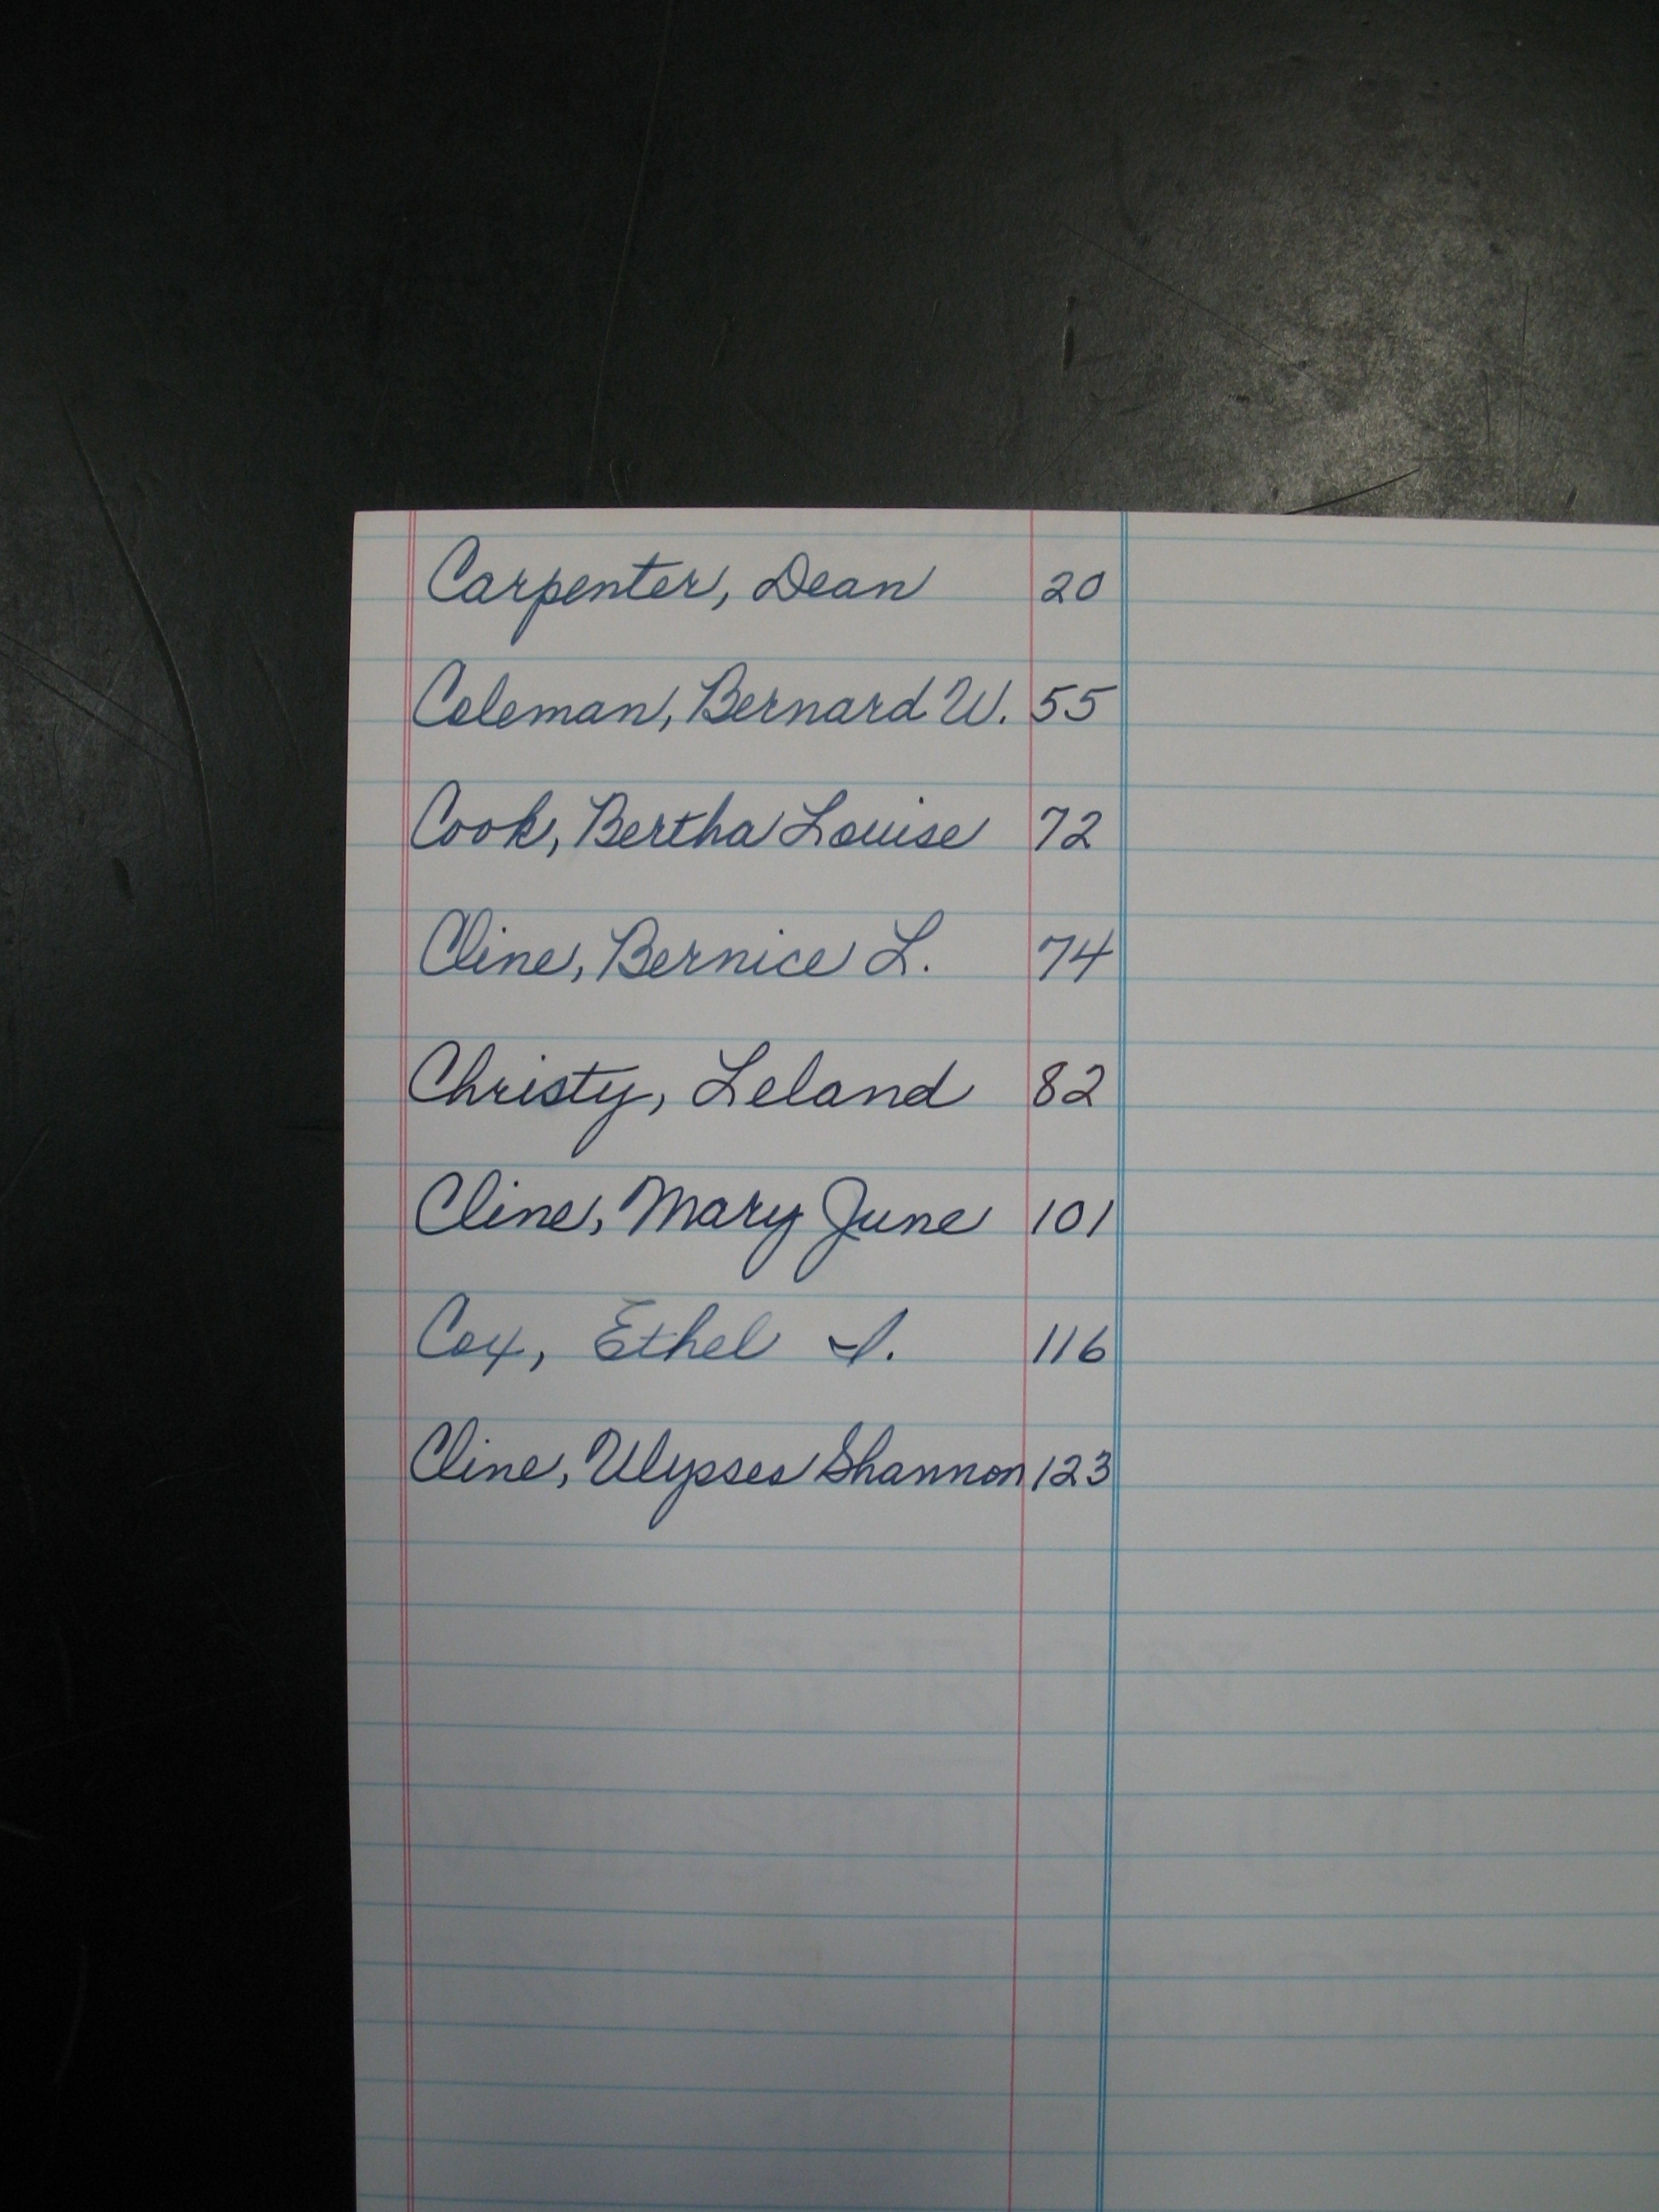 Carpenter, Dean 20
Coleman, Bernard W. 55
Cook, Bertha Louise 72
Cline, Bernice L. 74
Christy, Leland 82
Cline, Mary June 101
Cox, Ethel I. 116
Cline, Ulysses Shannon 123